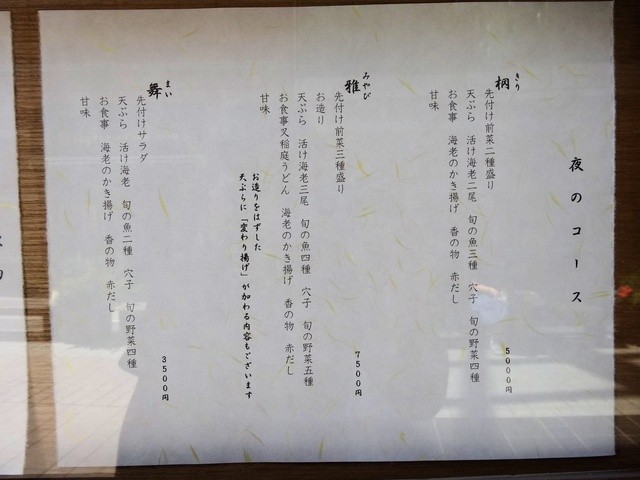 夜のコース
きり
桐
先付け前菜二種盛り
天ぷら 活け海老二尾 旬の魚三種 穴子 旬の野菜四種
お食事 海老のかき揚げ 香の物 赤だし
甘味
5000円
みやび
雅
先付け前菜三種盛り
お造り
天ぷら 活け海老三尾 旬の魚四種 穴子 旬の野菜五種
お食事又稲庭うどん 海老のかき揚げ 香の物 赤だし
甘味
7500円
お造りをはずした
天ぷらに「変わり揚げ」が加わる内容もございます
まい
舞
先付けサラダ
天ぷら 活け海老 旬の魚二種 穴子 旬の野菜四種
お食事 海老のかき揚げ 香の物 赤だし
甘味
3500円